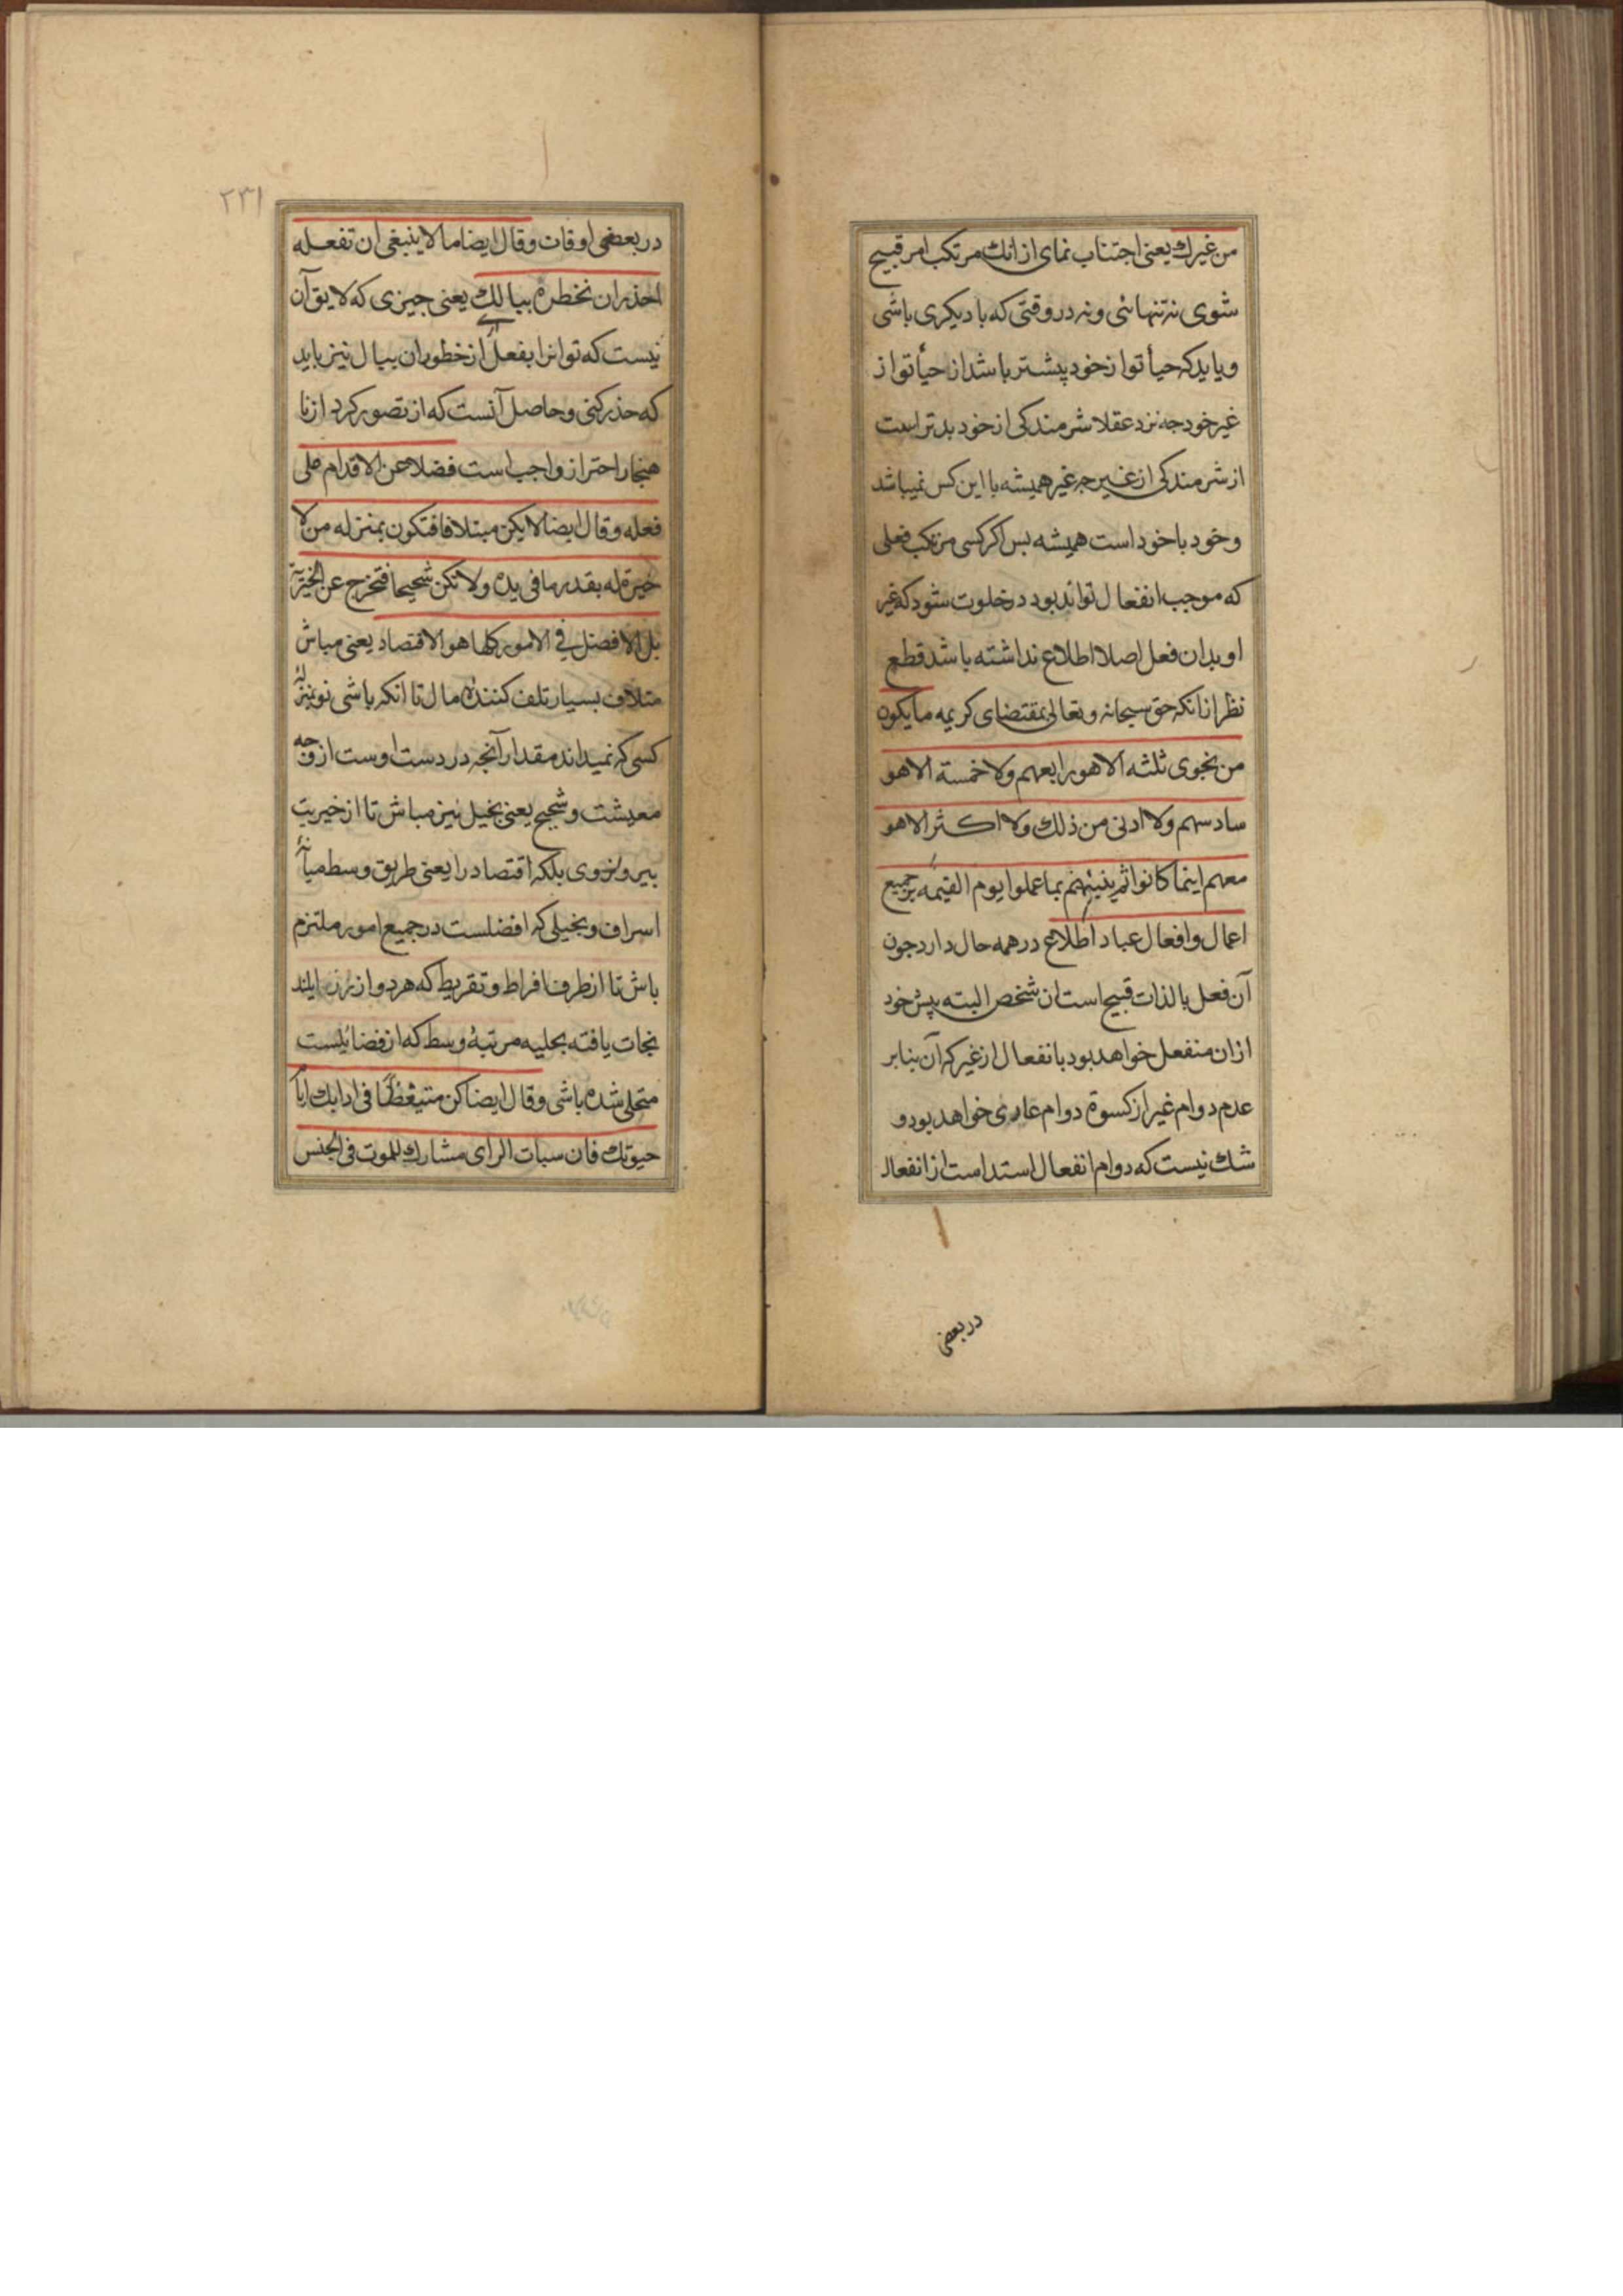 من غیرك یعنی اجتناب نمای از انك مرتکب امر قبیح
شوی نه تنهائی و نه در وقتی که با دیکری باشی
و باید که حیأ تو از خود پیشتر باشد از حیأ تو از
غیر خود جه نزد عقلا شرمندکی از خود بدتر است
از شرمندکی از غیر جه غیر همیشه با این کس نمیباشد
و خود با خود است همیشه بس اکر کسی مرتکب فعلی
که موجب انفعال تواند بود در خلوت شود که غیر
او بدان فعل اصلا اطلاع نداشته باشد قطع
نظر ازانکه حق سبحانه وتعالی بمقتضای کریمه ما یکون
من نجوی ثلثه الا هو رابعهم ولا خمسة الا هو
سادسهم ولا ادنی من ذلك ولا اکثر الا هو
معهم اینما کانوا ثم ینبئهم بما عملوا یوم القیمه بر جمیع
اعمال وافعال عباد اطلاع در همه حال دارد جون
آن فعل بالذات قبیح است ان شخص البته پیش خود
ازان منفعل خواهد بود بانفعال از غیر که آن بنابر
عدم دوام غیر از کسوة دوام عاری خواهد بود و
شك نیست که دوام انفعال اسد است از انفعال
در بعضی
۲۳۱
در بعضی اوقات وقال ایضا ما لا ینبغی ان تفعله
احذر ان تخطره ببالك یعنی جیزی که لایق آن
نیست که تو انرا بفعل اری از خطور ان ببال نیز باید
که حذر کنی و حاصل آنست که از تصور کرد از نا
هنجار احتراز واجب است فضلا عن الاقدام علی
فعله وقال ایضا لا یکن مبتلافا فتکون بمنزله من لا
خبرة له بقدر ما فی یده ولا تکن شحیحا فتخرج عن الخیریة
بل الافضل فی الامور کلها هو الاقتصاد یعنی مباش
متلاف بسیار تلف کننده مال تا انکه باشی تو بمنزله
کسی که نمیداند مقدار آنجه در دست اوست از وجه
معیشت و شحیح یعنی بخیل نیز مباش تا از خیریت
بیرون نروی بلکه اقتصاد را یعنی طریق وسط میانه
اسراف و بخیلی که افضلست در جمیع امور ملتزم
باش تا از طرف افراط و تفریط که هر دو از رذایلند
نجات یافته بحلیه مرتبهٔ وسط که از فضایلست
متحلی شده باشی وقال ایضا کن متیقظا فی ادابك ایام
حیوتك فان سبات الرای مشارك للموت فی الجنس